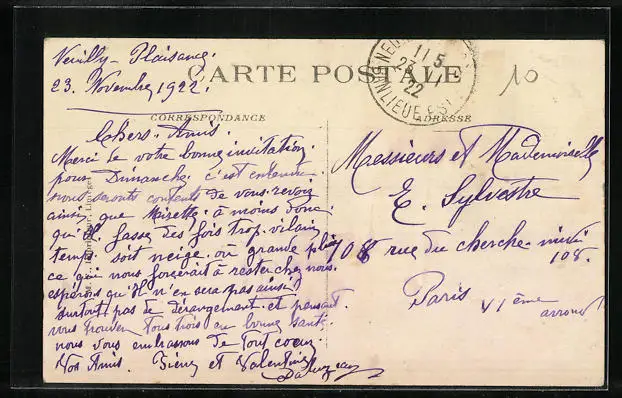 Neuilly-Plaisance
23. Novembre 1922.
CARTE POSTALE
11 5
23 11
22
BANLIEUE EST
10
CORRESPONDANCE
ADRESSE
Chers Amis.
Merci de votre bonne invitation.
pour Dimanche. c'est entendu
nous serons contents de vous revoir
ainsi que Mirette. à moins donc
qu'il fasse des fois trop vilain
temps soit neige. où grande pluie
ce qui nous forcerait à rester chez nous.
espérons qu'il n'en sera pas ainsi.
surtout pas de dérangement et pensant
vous trouver tous trois en bonne santé
nous vous embrassons de tout coeur.
Vos Amis. et Valentine
Messieurs et Mademoiselle
E. Sylvestre
108 rue du cherche-midi
108.
Paris VI ème
arrond